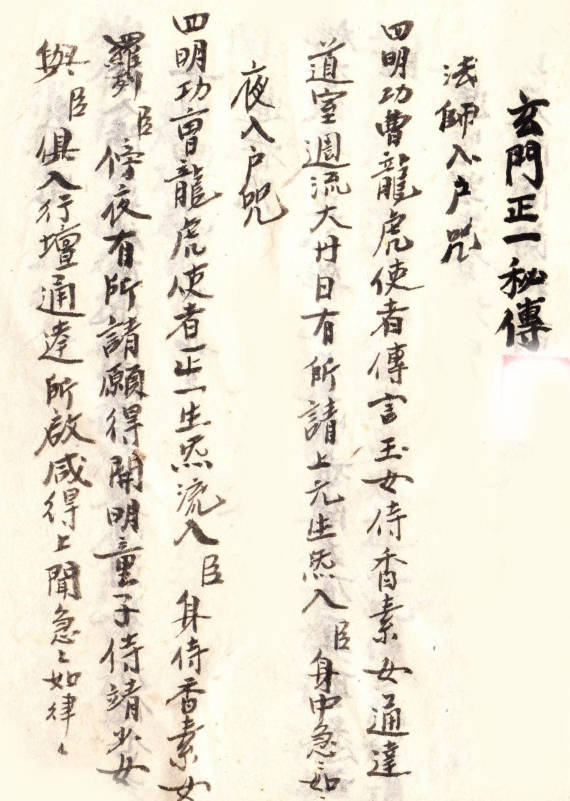 玄門正一秘傳
法師入户咒
四明功曹龍虎使者傳言玉女侍香素女通達
道室週流大丹日有所請上元生炁入臣身中急〻如
夜入户咒
四明功曹龍虎使者正一生炁流入臣身侍香素女
羅列臣傍夜有所請願得開明童子侍靖少女
與臣俱入行壇通達所啟咸得上聞急〻如律〻